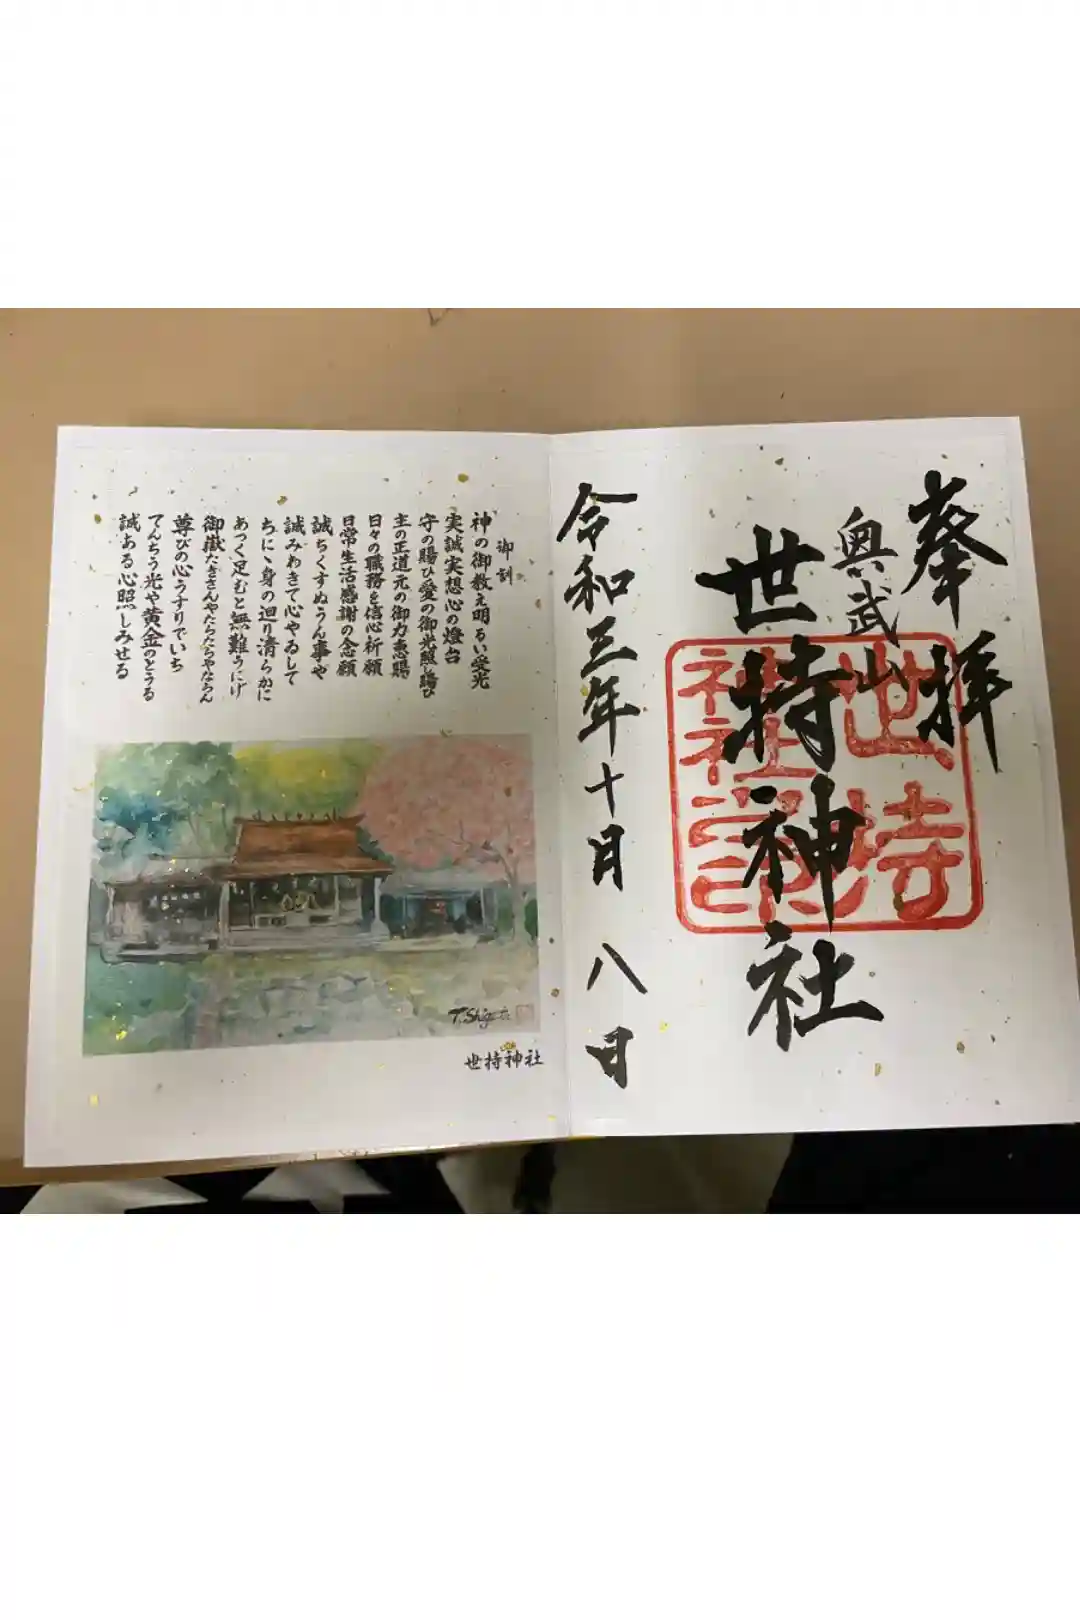 奉拝
奥武山
世持神社
世持
神社之印
令和三年十月八日
御訓
神の御教え明るい受光
実誠実想心の燈台
守の賜ひ愛の御光照し賜ひ
主の正道元の御力恵賜
日々の職務を信心祈願
日常生活感謝の念願
誠ちくすぬうん事や
誠みわきて心やゐして
ちにし身の廻り清らかに
あっく足むと無難うにげ
御嶽たぎさんやたらたらやならん
尊びの心うすりでいち
てんちう光や黄金のとうる
誠ある心照しみせる
T.Shig
世持神社